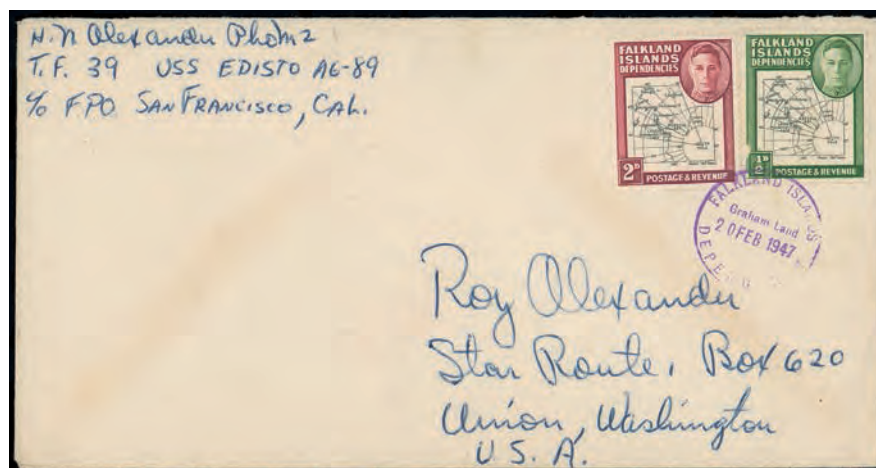 H. N Alexander PhoM2
T.F. 39 USS EDISTO AG-89
c/o FPO SAN FRANCISCO, CAL.
FALKLAND
ISLANDS
DEPENDENCIES
2D
POSTAGE & REVENUE
FALKLAND
ISLANDS
DEPENDENCIES
½D
POSTAGE & REVENUE
FALKLAND ISLANDS
Graham Land
20 FEB 1947
Roy Alexander
Star Route, Box 620
Union, Washington
U. S. A.